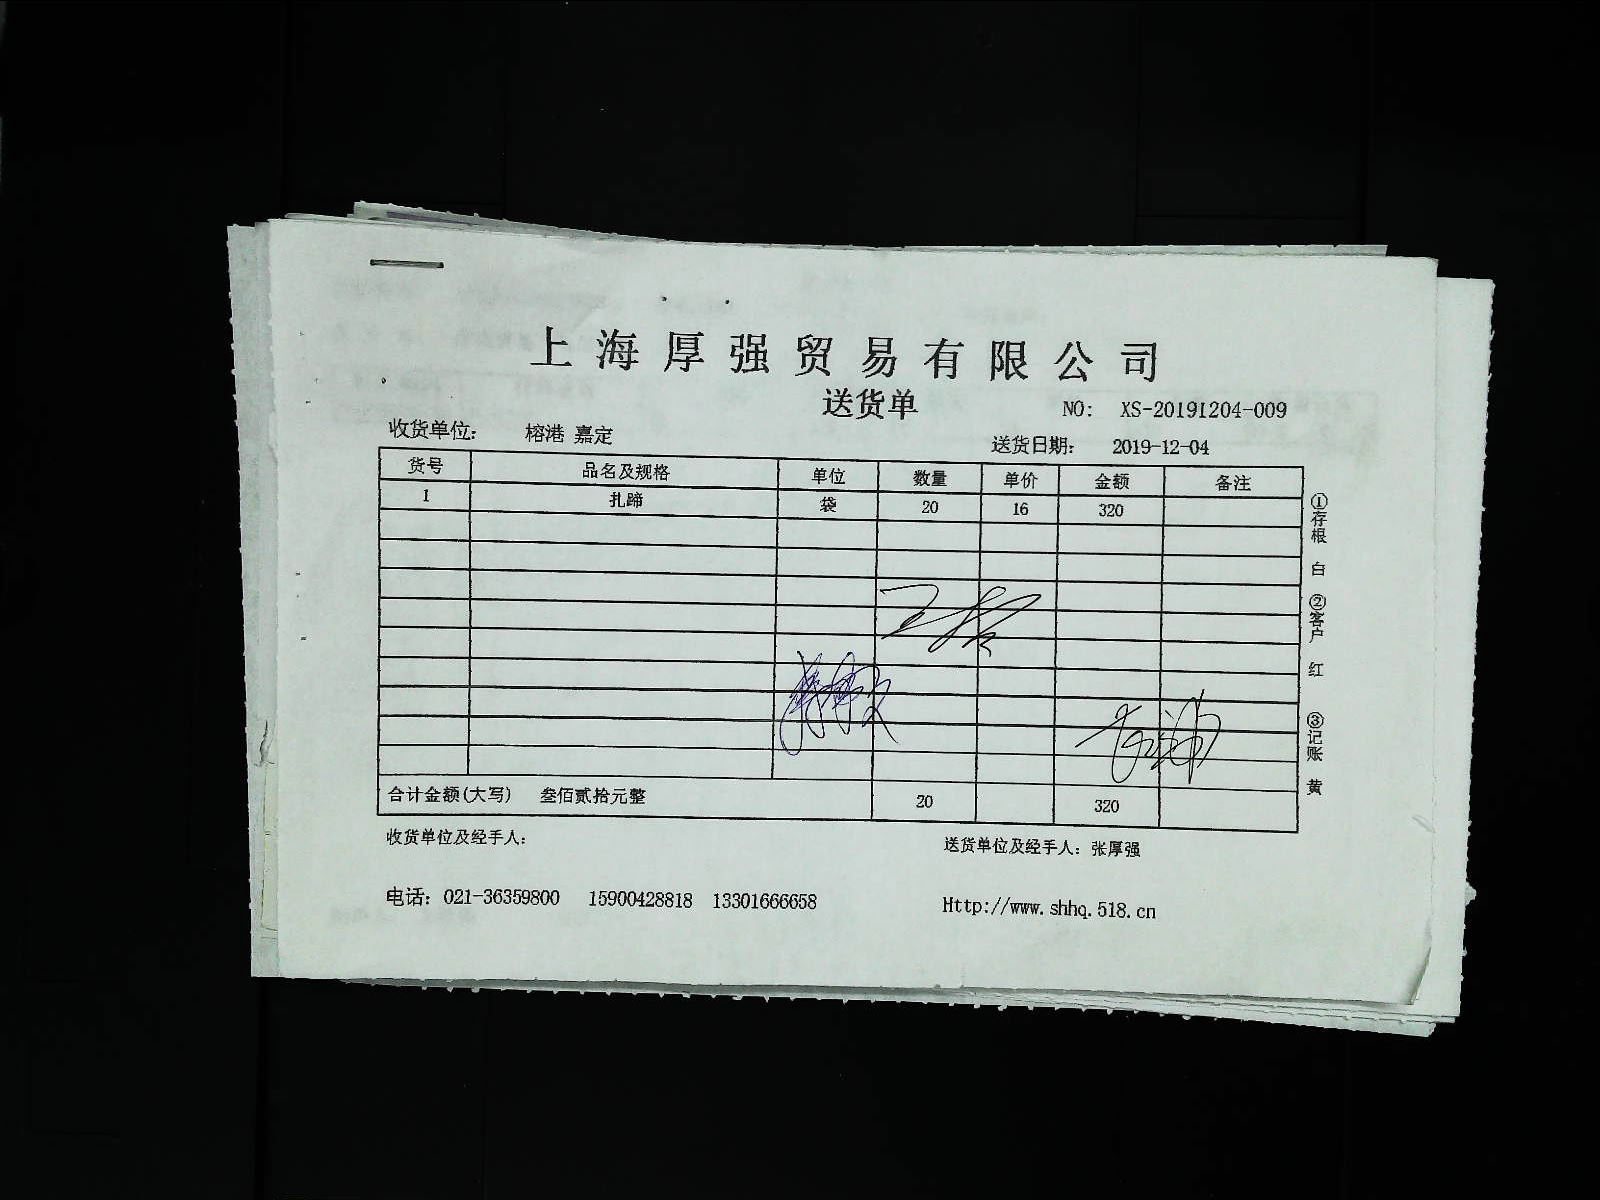 上海厚强贸易有限公司
送货单
NO: XS-20191204-009
收货单位: 榕港 嘉定
送货日期: 2019-12-04
货号 品名及规格 单位 数量 单价 金额 备注
1 扎蹄 袋 20 16 320
合计金额(大写) 叁佰贰拾元整 20 320
收货单位及经手人:
送货单位及经手人: 张厚强
电话: 021-36359800 15900428818 13301666658
Http://www.shhq.518.cn
①存根 白 ②客户 红 ③记账 黄